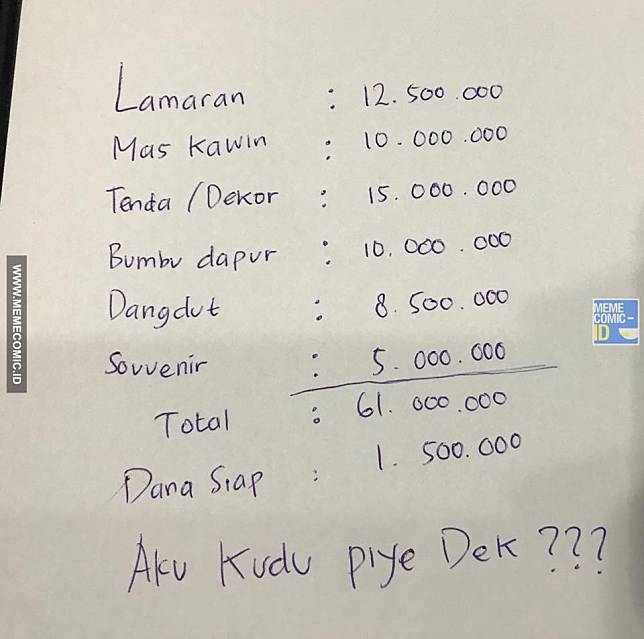 Lamaran : 12.500.000
Mas Kawin : 10.000.000
Tenda/Dekor : 15.000.000
Bumbu dapur : 10.000.000
Dangdut : 8.500.000
Souvenir : 5.000.000
Total : 61.000.000
Dana Siap : 1.500.000
Aku Kudu piye Dek ???
WWW.MEMECOMIC.ID
MEME
COMIC-
ID